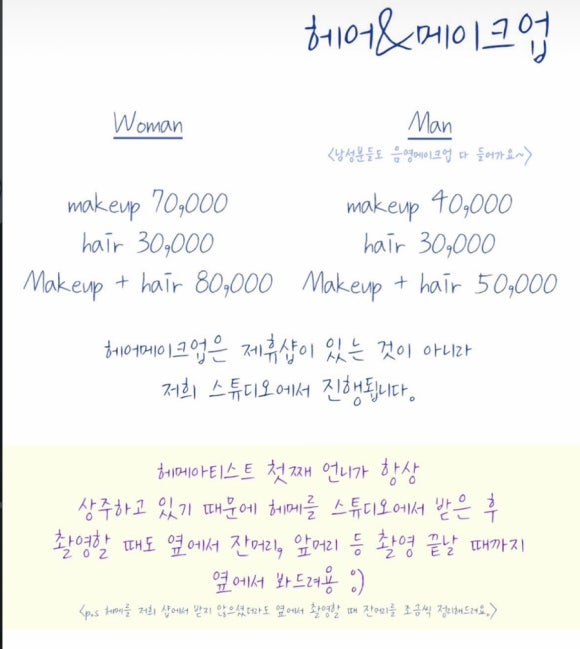 헤어&메이크업
Woman
Man
<남성분들도 음영메이크업 다 들어가요~>
makeup 70,000
makeup 40,000
hair 30,000
hair 30,000
Makeup + hair 80,000
Makeup + hair 50,000
헤어메이크업은 제휴샵이 있는 것이 아니라
저희 스튜디오에서 진행됩니다.
헤메아티스트 첫째 언니가 항상
상주하고 있기 때문에 헤메를 스튜디오에서 받은 후
촬영할 때도 옆에서 잔머리, 앞머리 등 촬영 끝날 때까지
옆에서 봐드려용 :)
<p.s 헤메를 저희 샵에서 받지 않으셨더라도 옆에서 촬영할 때 잔머리를 조금씩 정리해드려요.>